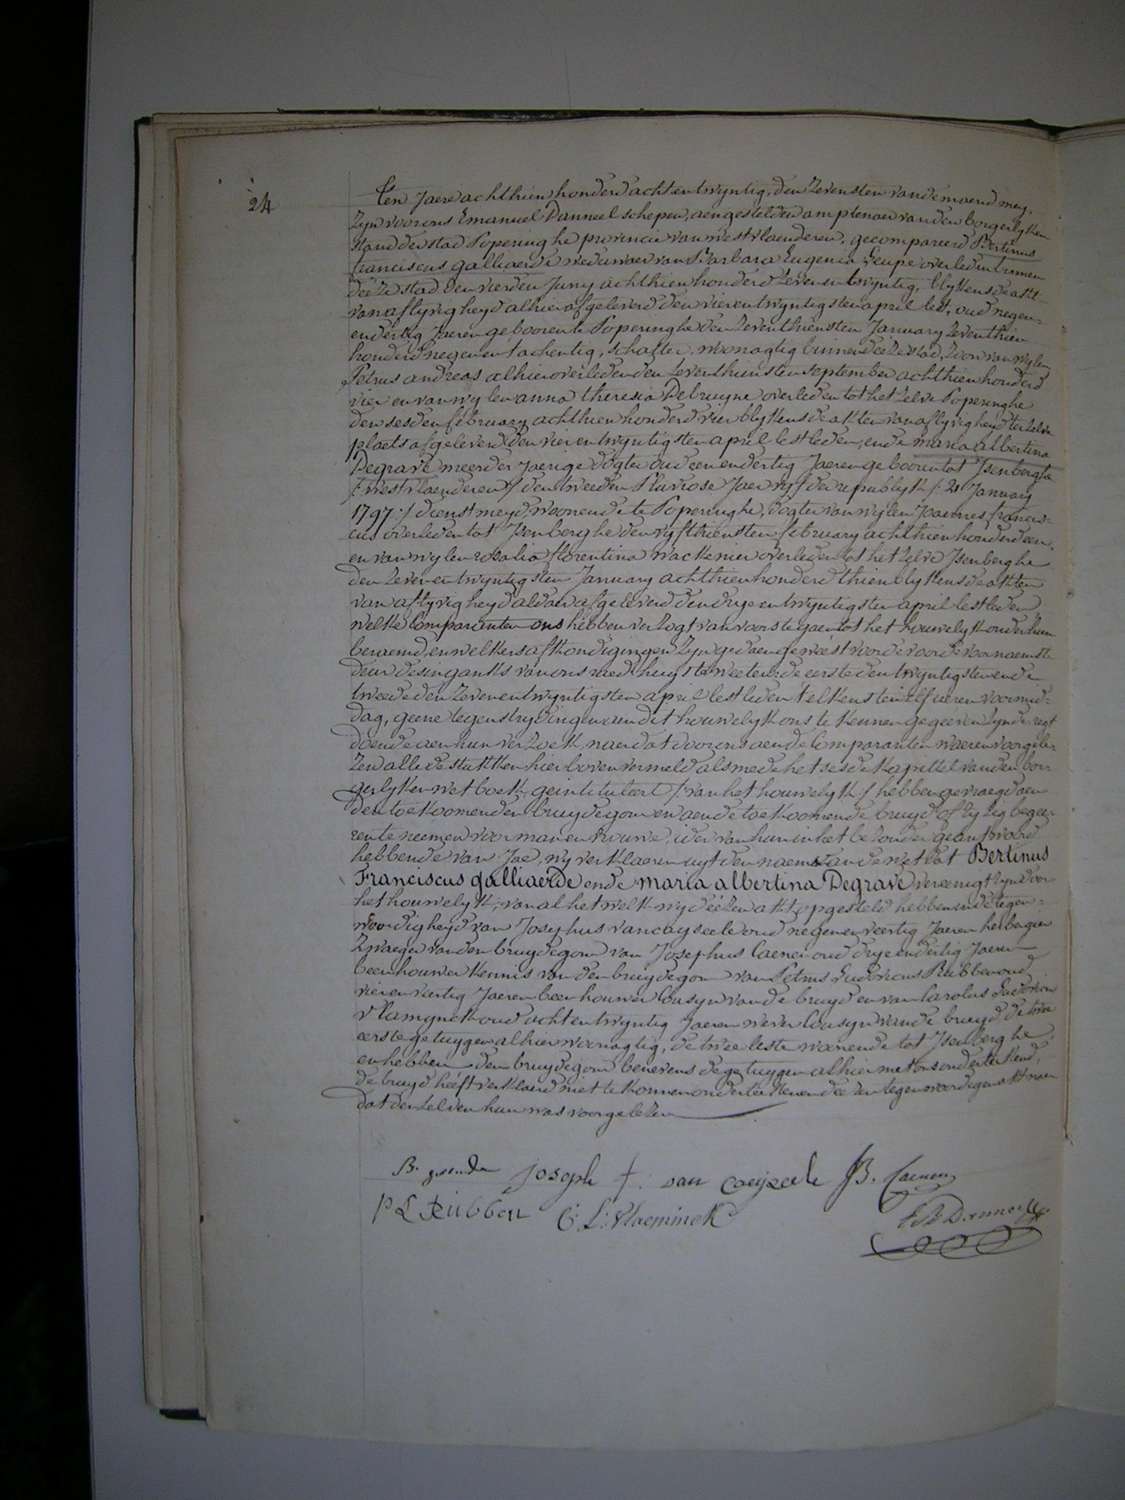 24
Ten Jaere achthien honderd acht en twyntig, den zevensten van de maend mey,
zyn voor ons Emanuel Danneel schepen, aengestelden amptenaer van den borgerlyken
stand der stad Poperinghe provincie van westvlaenderen, gecompareerd Bertinus
franciscus galliaerde weduwaer van Barbara Eugenia Leupe overleden binnen
deéze stad den vierden Juny achthien honderd zeven en twyntig, blykens de akte
van aflyvigheyd alhier afgeleverd den vier en twyntigsten april lest, oud negen
en dertig Jaeren gebooren te Poperinghe den zeventhiensten January zeventhien
honderd negen en tachentig, schafter, woonagtig binnen deéze stad, zoon van wylen
Petrus andreas alhier overleden den zeventhiensten september achthien honderd
vier en van wylen anna theresia Debruyne overleden tot het zelve Poperinghe
den sesden february achthien honderd vier blykens de akten van aflyvigheyd te zelve
plaets afgeleverd den vier en twyntigsten april lestleden, ende maria albertina
Degrave meerderjaerige dogter oud een en dertig Jaeren gebooren tot Isenberghe
(westvlaenderen) den tweeden Pluviose Jaer vyf der republyk (21 January
1797) dienstmeyd woonende te Poperinghe, dogter van wylen Joannes francis-
cus overleden tot Isenberghe den vyfthiensten february achthien honderd een,
en van wylen rosalia florentina Wackenier overleden tot het zelve Isenberghe
den zeven en twyntigsten January achthien honderd thien blykens de akten
van aflyvigheyd aldaer afgeleverd den drye en twyntigsten april lestleden
welke Comparanten ons hebben verzogt van voorts te gaen tot het houwelyk onder hun
beraemd, en welkers afkondigingen zyn gedaen geweést voor de voornaemste
deur des ingankts van ons raedhuys te weeten de eerste den twyntigsten ende
tweede den zeven en twyntigsten april lestleden telkens ten elf ueren voormid-
dag, geene tegenstrydingen aen dit houwelyk ons te kennen gegeéven zynde regt
doende aen hun verzoek, naer dat door ons aen de Comparanten waeren voorgele-
zen alle de stukken hier boven vermeld alsmede het sesde kapittel van den bor-
gerlyken wetboek, geintituleert (van het houwelyk) hebben gevraegd aen
den toekoomenden bruydegom en aen de toekoomende bruyd of zy zig begee-
ren te neemen voor man en vrouwe, ider van hun in het bezonder geantwoord
hebbende van Jae, wy verklaeren uyt den naem van de wet dat Bertinus
Franciscus galliaerde ende maria albertina Degrave vereenigt zyn door
het houwelyk; van al het welk wy deézen akt opgesteld hebben in de tegen-
woordigheyd van Josephus vancayseele oud negen en veertig Jaeren herbergier
zwaeger van den bruydegom van Josephus Caenen oud drye en dertig Jaeren
beenhouwer kennis van den bruydegom van Petrus Ludovicus Rubben oud
vier en veertig Jaeren beenhouwer Cousyn van de bruyd en van Carolus Ludovicus
Vlamynck oud acht en twyntig Jaeren wever Cousyn van de bruyd de twee
eerste getuygen alhier woonagtig, de twee leste woonende tot Isenberghe
en hebben den bruydegom benevens de getuygen alhier met ons onderteekend,
de bruyd heéft verklaerd niet te konnen onderteekenen deézen tegenwoordigen akt naer
dat den zelven hun was voorgelezen
joseph f. van caeyseele JB. Caenen
P L Rubben C: L: Vlaeminck